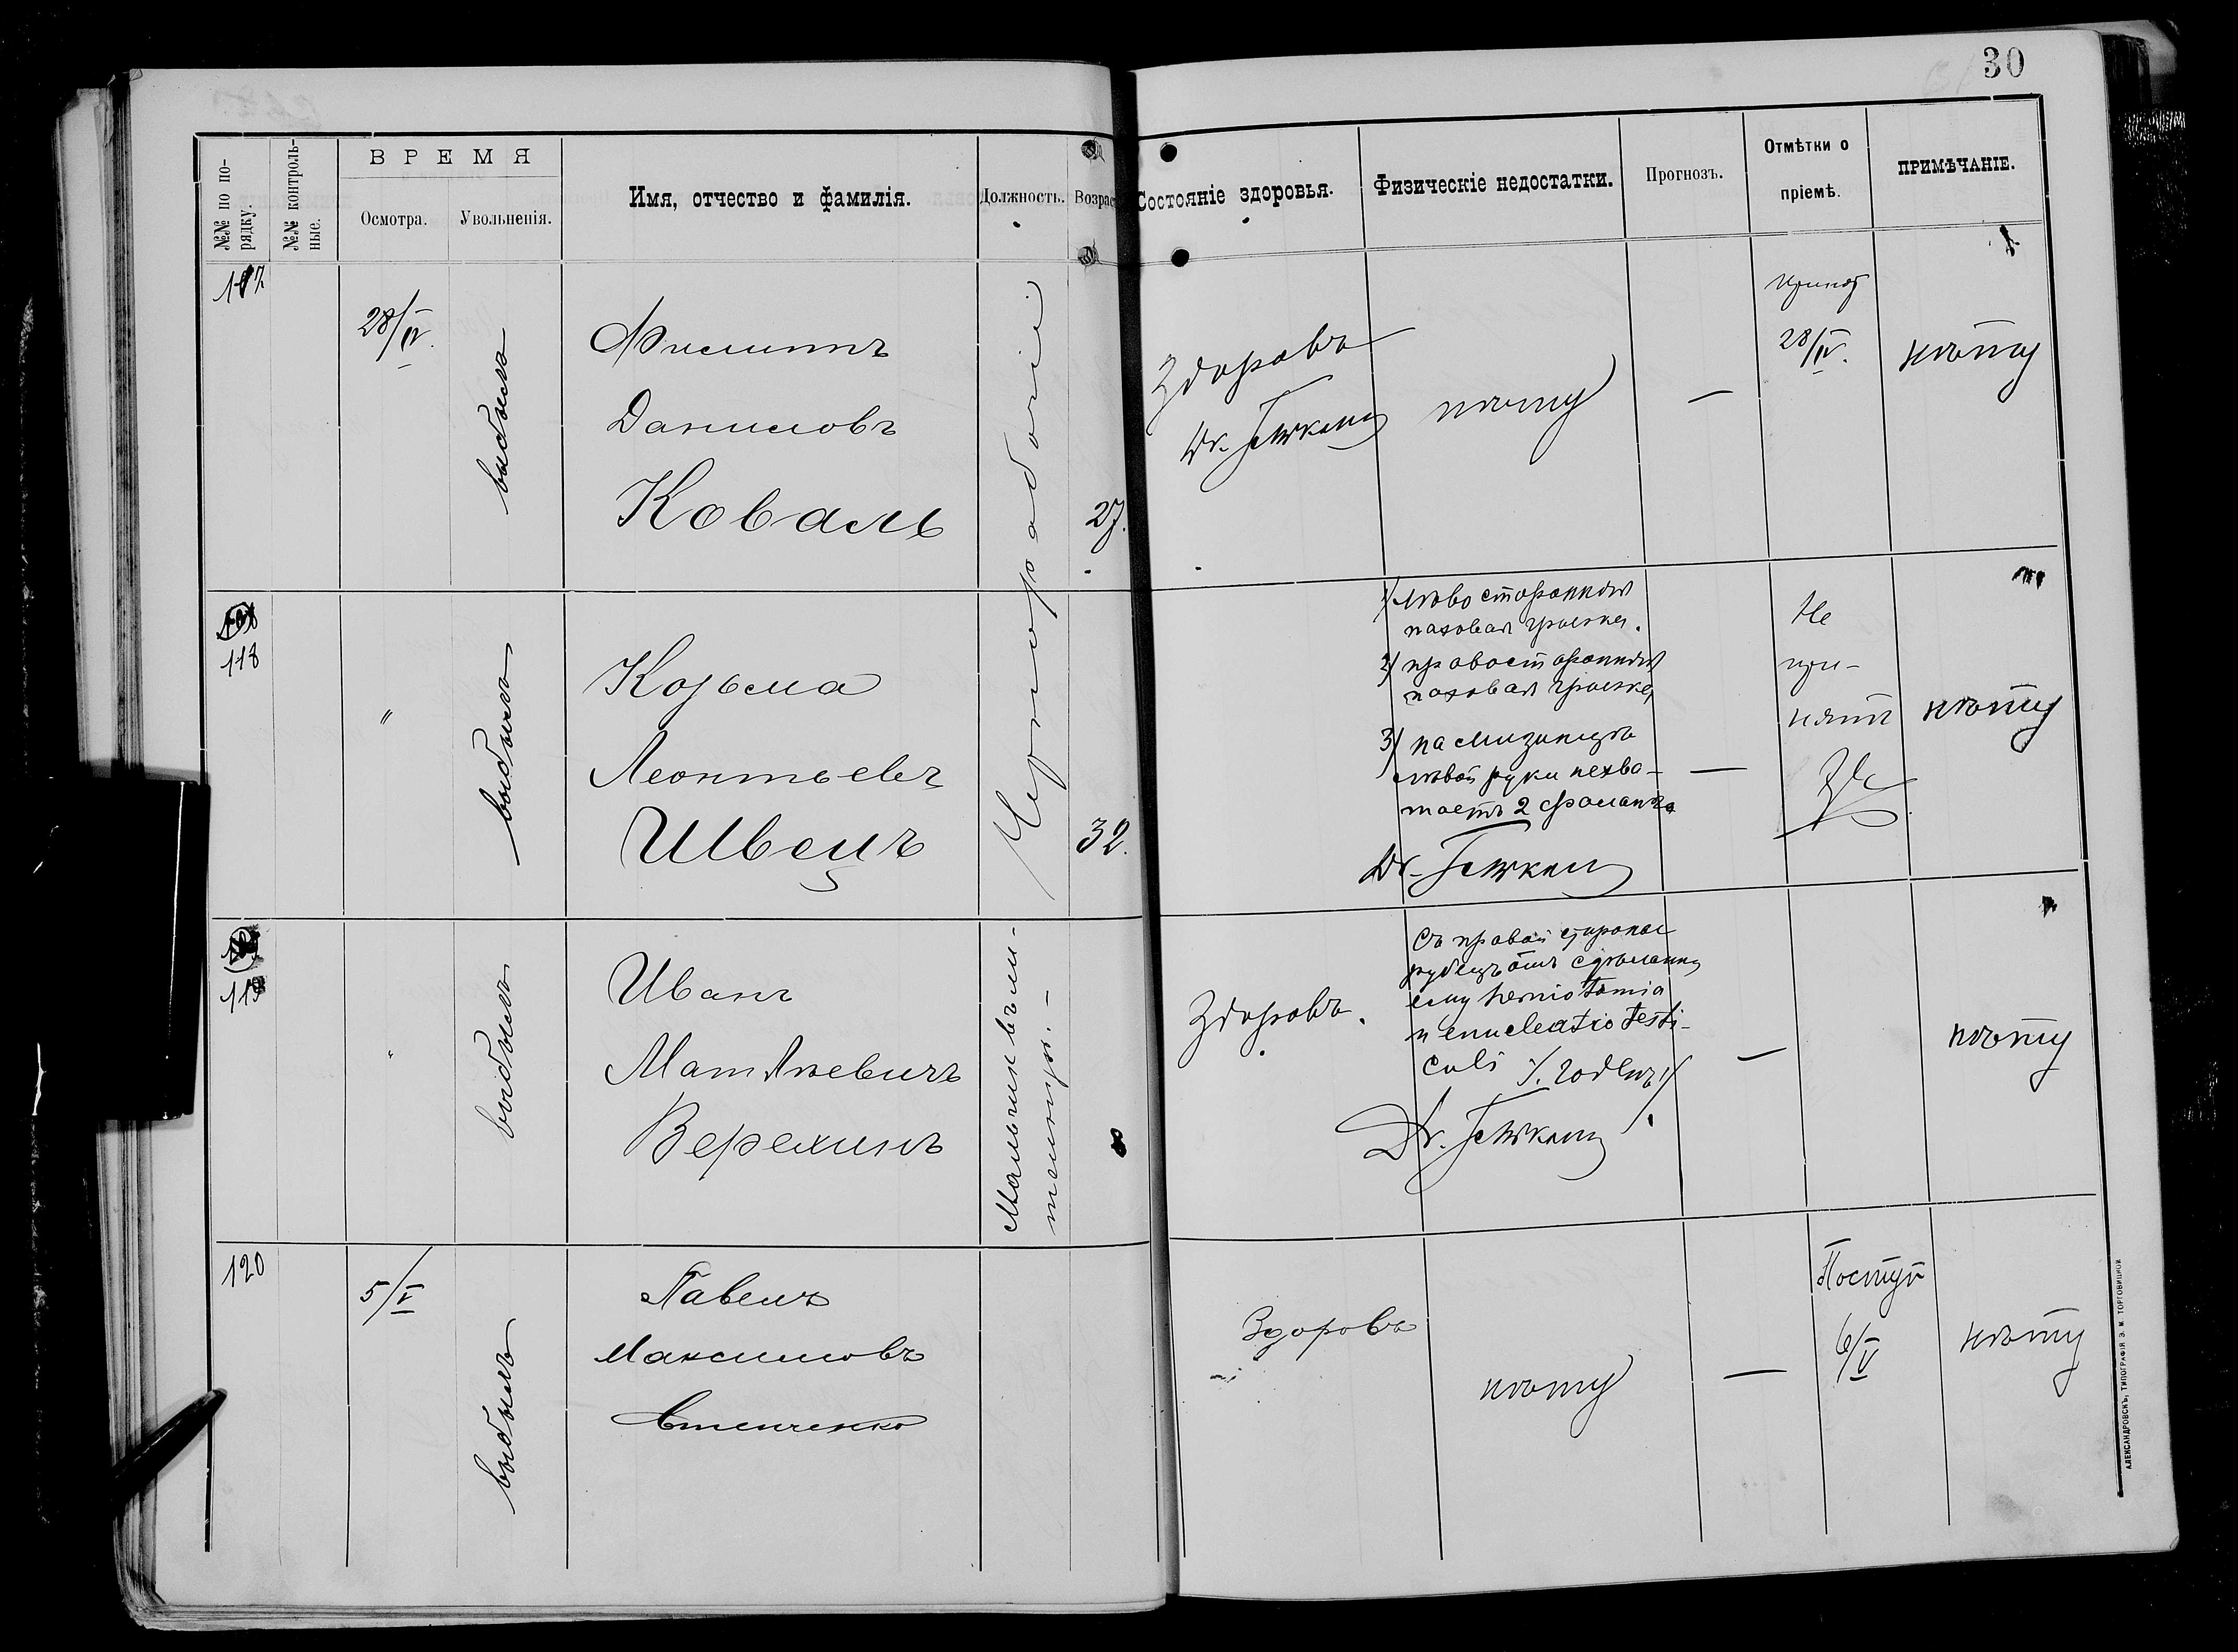 30
№№ по по-
рядку.
№№ контроль-
ные.
ВРЕМЯ
Осмотра.
Увольненія.
Имя, отчество и фамилія.
Должность.
Возрас
Состояніе здоровья.
Физическіе недостатки.
Прогнозъ.
Отмѣтки о
пріемѣ.
ПРИМѢЧАНІЕ.
117
28/IV.
выбылъ
Филиппъ
Даниловъ
Коваль
Чернорабочій
27.
Здоровъ
Dr.
нѣту
—
принят
28/IV.
нѣту
118
"
выбылъ
Козьма
Леонтьевъ
Швецъ
32.
1) лѣвосторонняя
паховая грыжа.
2) правосторонняя
паховая грыжа
3) на мизинцѣ
лѣвой руки нехва-
таетъ 2 фаланга
Dr.
—
Не
при-
нятъ
нѣту
119
"
выбылъ
Иванъ
Матвѣевичъ
Верехинъ
Мальчик въ ли-
тейную. –
Здоровъ.
Съ правой стороны
рубецъ отъ сдѣланной
ему herniotomia
и enucleatio testi-
culi
Dr.
—
нѣту
120
5/V
выбылъ
Павелъ
Максимовъ
Здоровъ
нѣту
—
Поступ
6/V
нѣту
АЛЕКСАНДРОВСКЪ, ТИПОГРАФІЯ Э. М. ТОРГОВИЦКОЙ